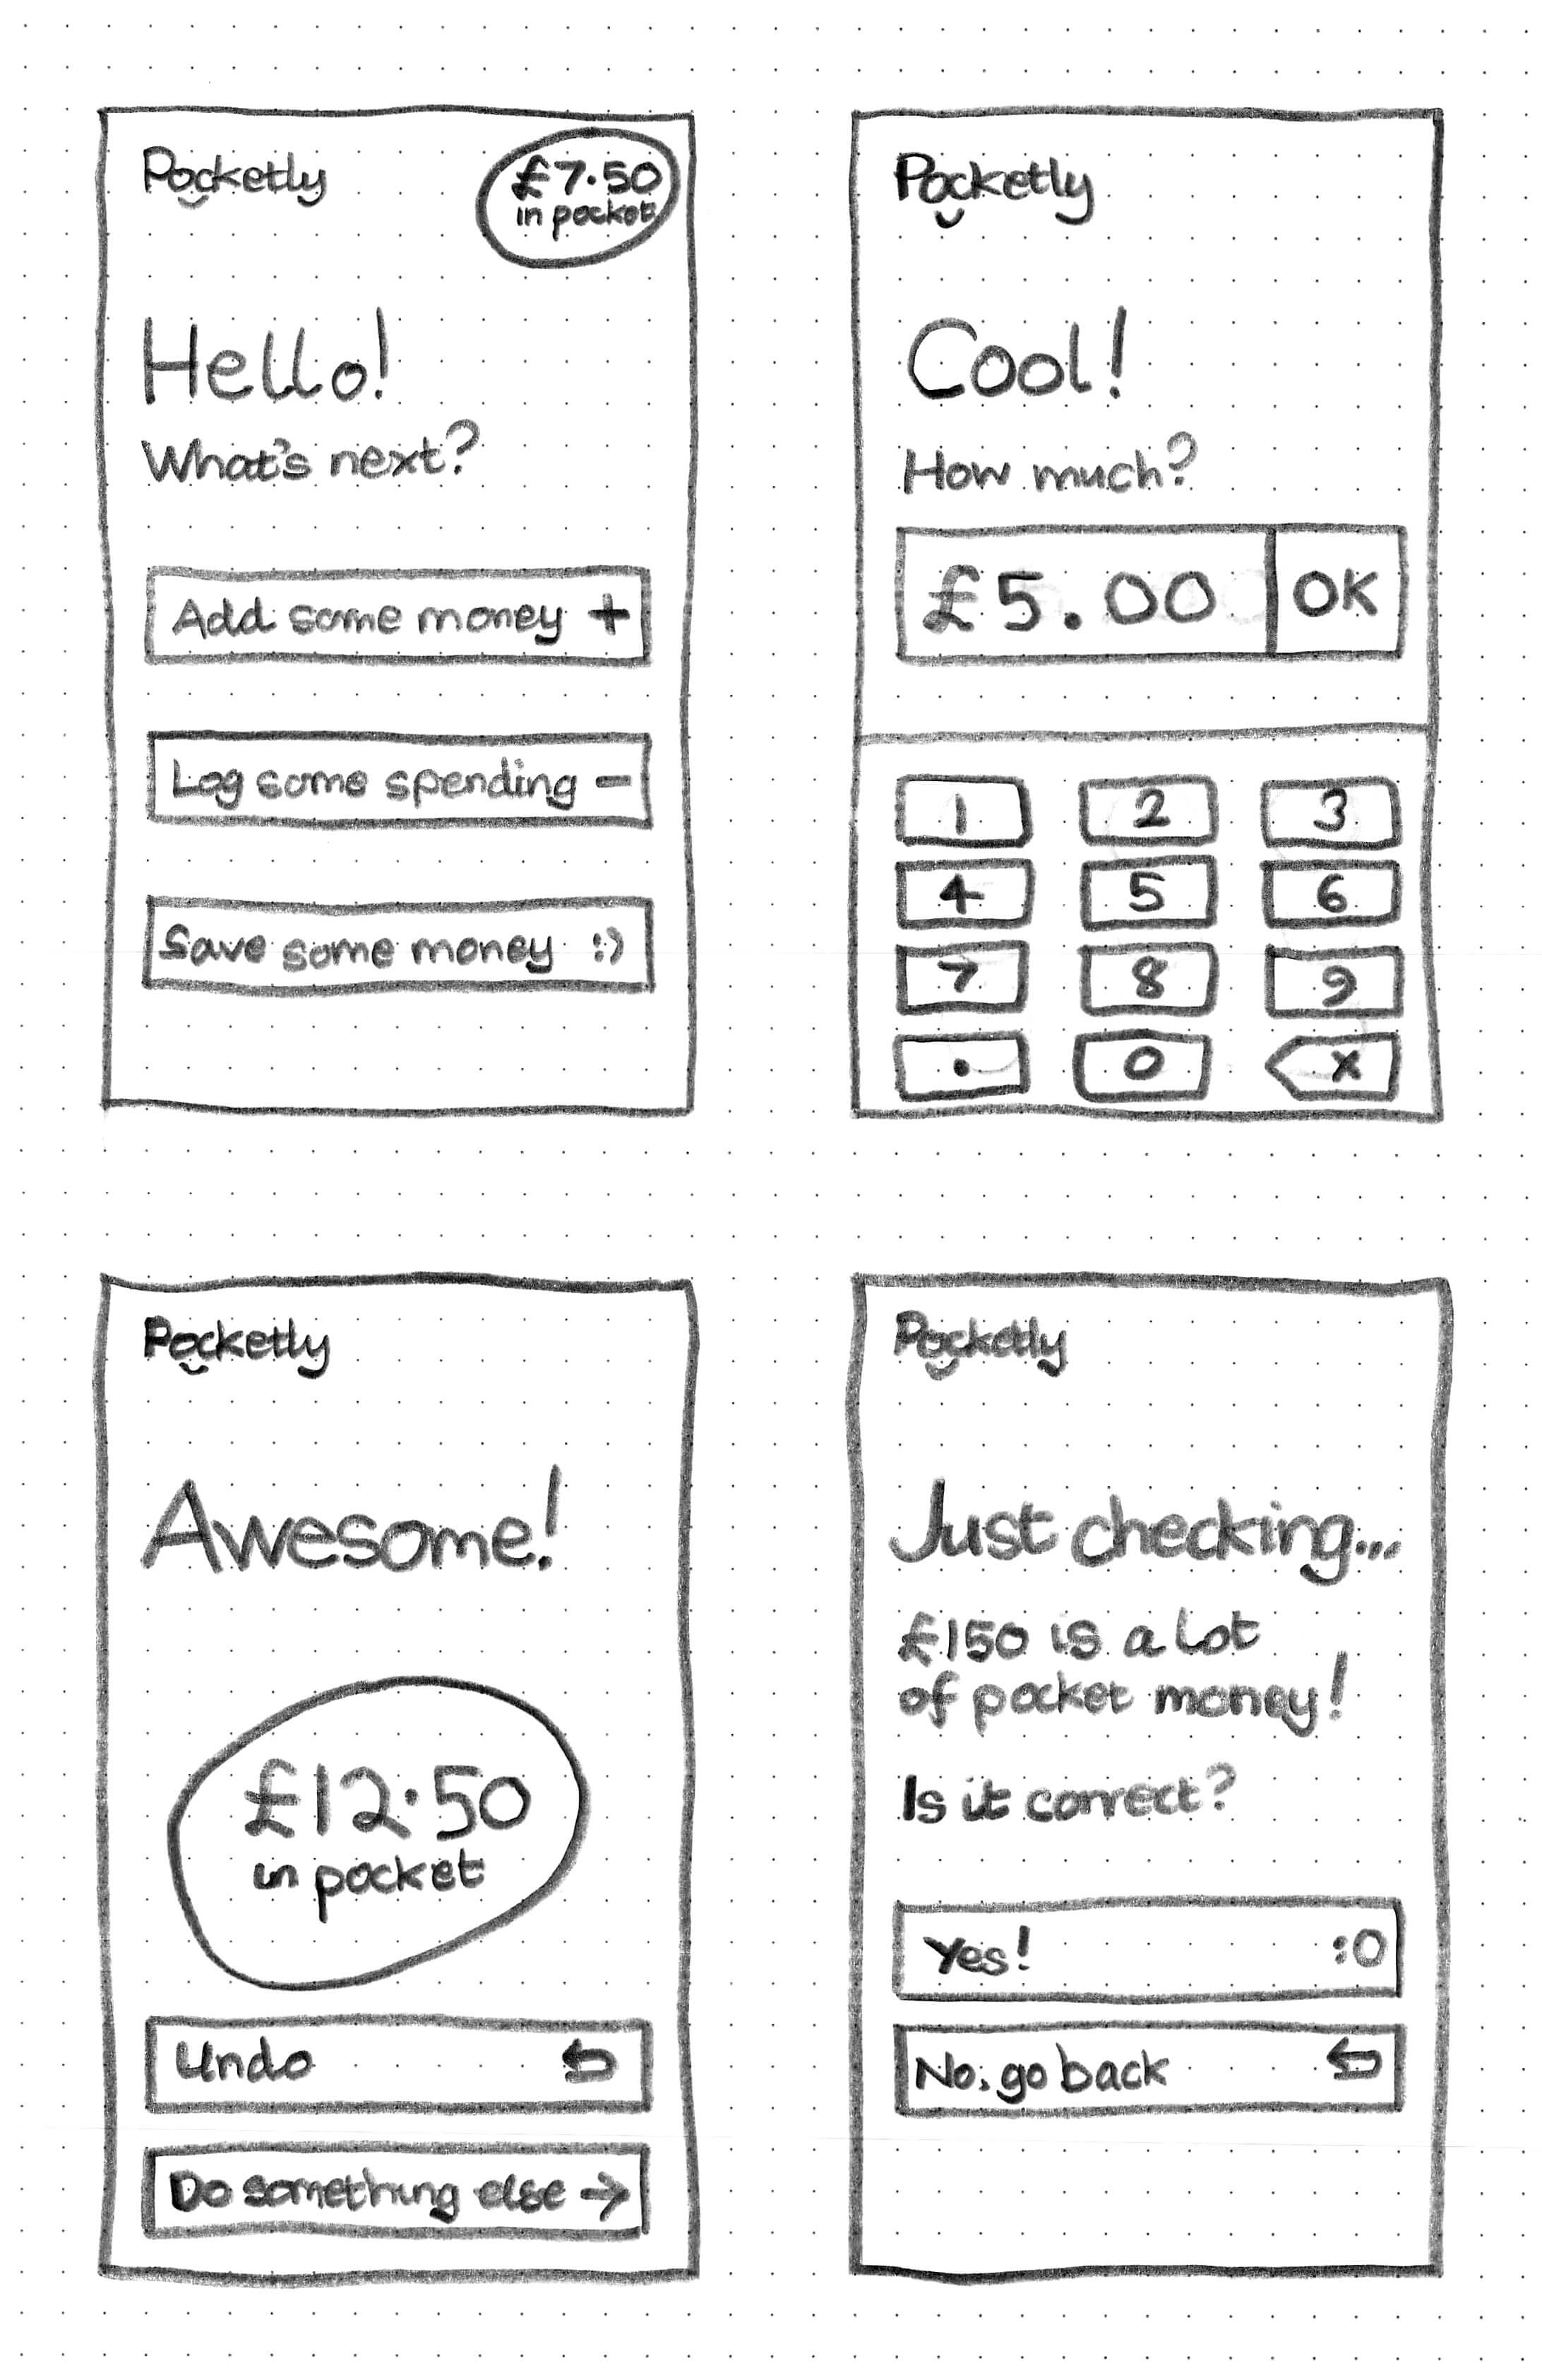 Pocketly
£7.50
in pocket
Hello!
What's next?
Add some money +
Log some spending -
Save some money :)
Pocketly
Cool!
How much?
£5.00 OK
1 2 3
4 5 6
7 8 9
. 0 x
Pocketly
Awesome!
£12.50
in pocket
Undo
Do something else →
Pocketly
Just checking...
£150 is a lot
of pocket money!
Is it correct?
Yes! :O
No, go back